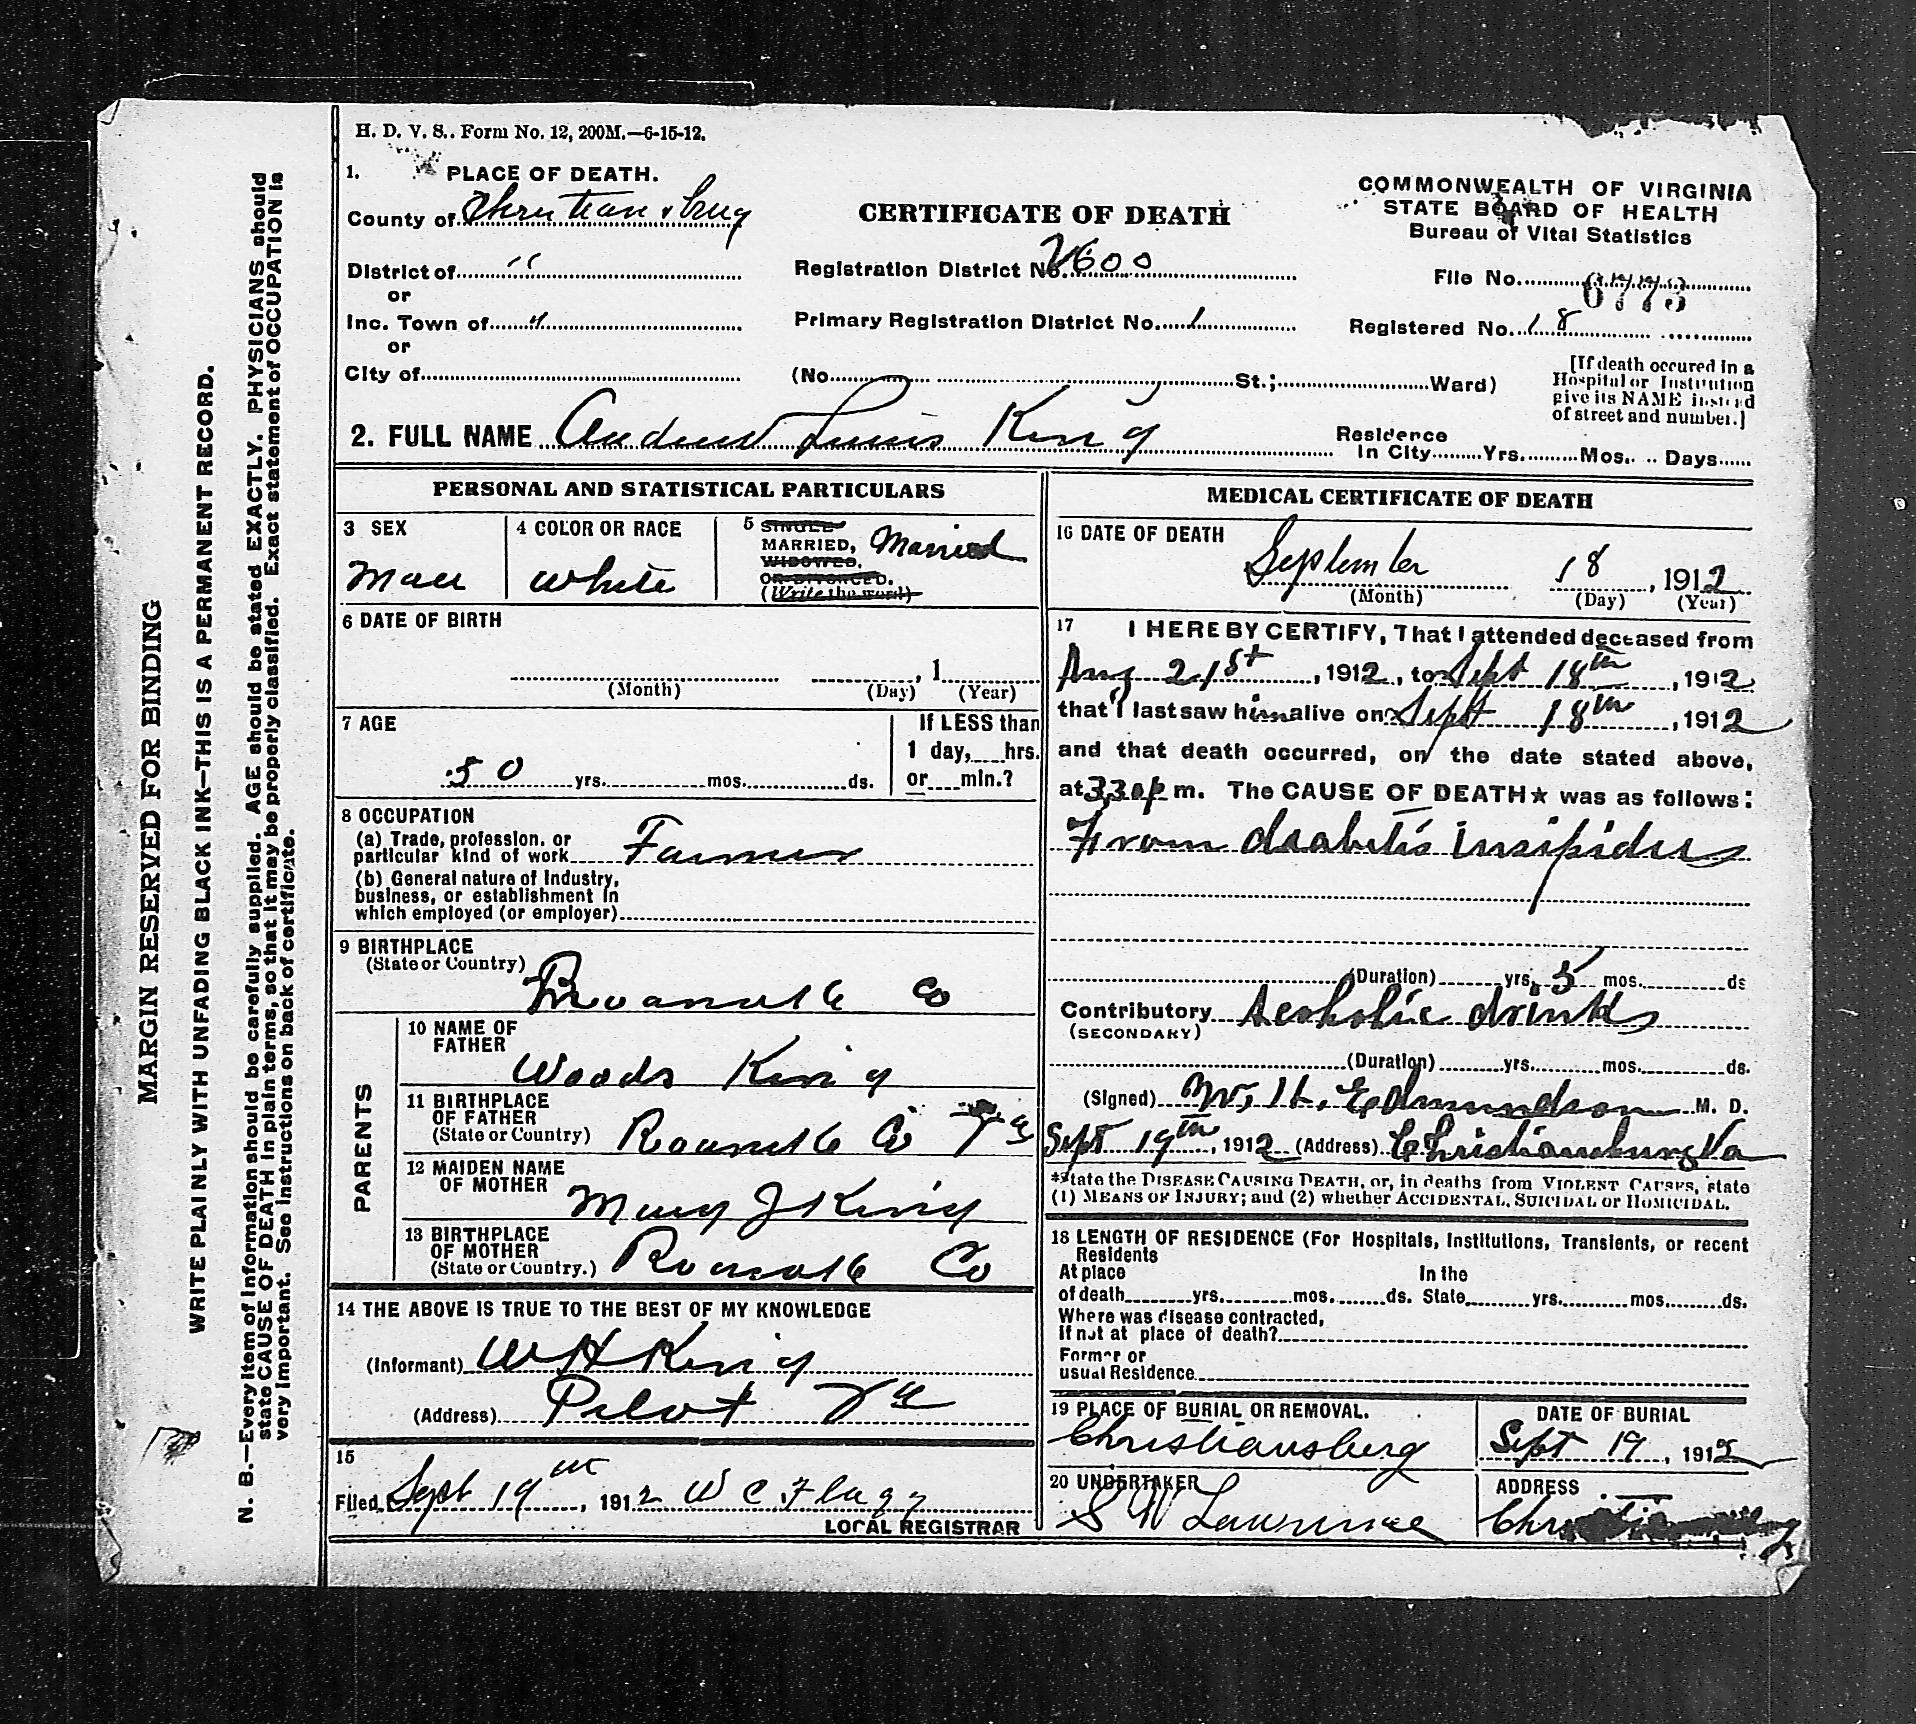 H. D. V. S.. Form No. 12, 200M.—6-15-12.
1. PLACE OF DEATH.
County of Christiansburg
District of "
or
Inc. Town of "
or
City of
CERTIFICATE OF DEATH
Registration District No. 2600
Primary Registration District No. 1
(No. St.; Ward)
COMMONWEALTH OF VIRGINIA
STATE BOARD OF HEALTH
Bureau of Vital Statistics
File No.
Registered No. 18
[If death occured in a
Hospital or Institution
give its NAME instead
of street and number.]
2. FULL NAME Andrew Lewis King
Residence
In City Yrs. Mos. Days
PERSONAL AND STATISTICAL PARTICULARS
3 SEX
Male
4 COLOR OR RACE
White
5 SINGLE
MARRIED, Married
WIDOWED,
OR DIVORCED.
(Write the word)
6 DATE OF BIRTH
, 1
(Month) (Day) (Year)
7 AGE
50 yrs. mos. ds.
If LESS than
1 day, hrs.
or min.?
8 OCCUPATION
(a) Trade, profession, or
particular kind of work Farmer
(b) General nature of Industry,
business, or establishment in
which employed (or employer)
9 BIRTHPLACE
(State or Country)
Roanoke Co
PARENTS
10 NAME OF
FATHER
Woods King
11 BIRTHPLACE
OF FATHER
(State or Country) Roanoke Co Va
12 MAIDEN NAME
OF MOTHER
Mary J King
13 BIRTHPLACE
OF MOTHER
(State or Country.) Roanoke Co
14 THE ABOVE IS TRUE TO THE BEST OF MY KNOWLEDGE
(Informant) W H King
(Address) Pilot Va
15
Filed Sept 19th, 1912 W C Flagg
LOCAL REGISTRAR
MEDICAL CERTIFICATE OF DEATH
16 DATE OF DEATH
September 18, 1912
(Month) (Day) (Year)
17 I HEREBY CERTIFY, That I attended deceased from
Aug 21st, 1912, to Sept 18th, 1912
that I last saw him alive on Sept 18th, 1912
and that death occurred, on the date stated above,
at 3,30 p m. The CAUSE OF DEATH★ was as follows:
From diabetis insipidus
(Duration) yrs. 5 mos. ds
Contributory Acoholic drinks
(SECONDARY)
(Duration) yrs. mos. ds.
(Signed) W. H. Edmundson M. D.
Sept 19th, 1912 (Address) Christiansburg Va
*State the DISEASE CAUSING DEATH, or, in deaths from VIOLENT CAUSES, state
(1) MEANS OF INJURY; and (2) whether ACCIDENTAL, SUICIDAL or HOMICIDAL.
18 LENGTH OF RESIDENCE (For Hospitals, Institutions, Transients, or recent
Residents
At place In the
of death yrs. mos. ds. State yrs. mos. ds.
Where was disease contracted,
If not at place of death?
Former or
usual Residence
19 PLACE OF BURIAL OR REMOVAL.
Christiansberg
DATE OF BURIAL
Sept 19, 1912
20 UNDERTAKER
S W Lawrence
ADDRESS
MARGIN RESERVED FOR BINDING
WRITE PLAINLY WITH UNFADING BLACK INK—THIS IS A PERMANENT RECORD.
N. B.—Every item of information should be carefully supplied. AGE should be stated EXACTLY. PHYSICIANS should
state CAUSE OF DEATH in plain terms, so that it may be properly classified. Exact statement of OCCUPATION is
very important. See instructions on back of certificate.